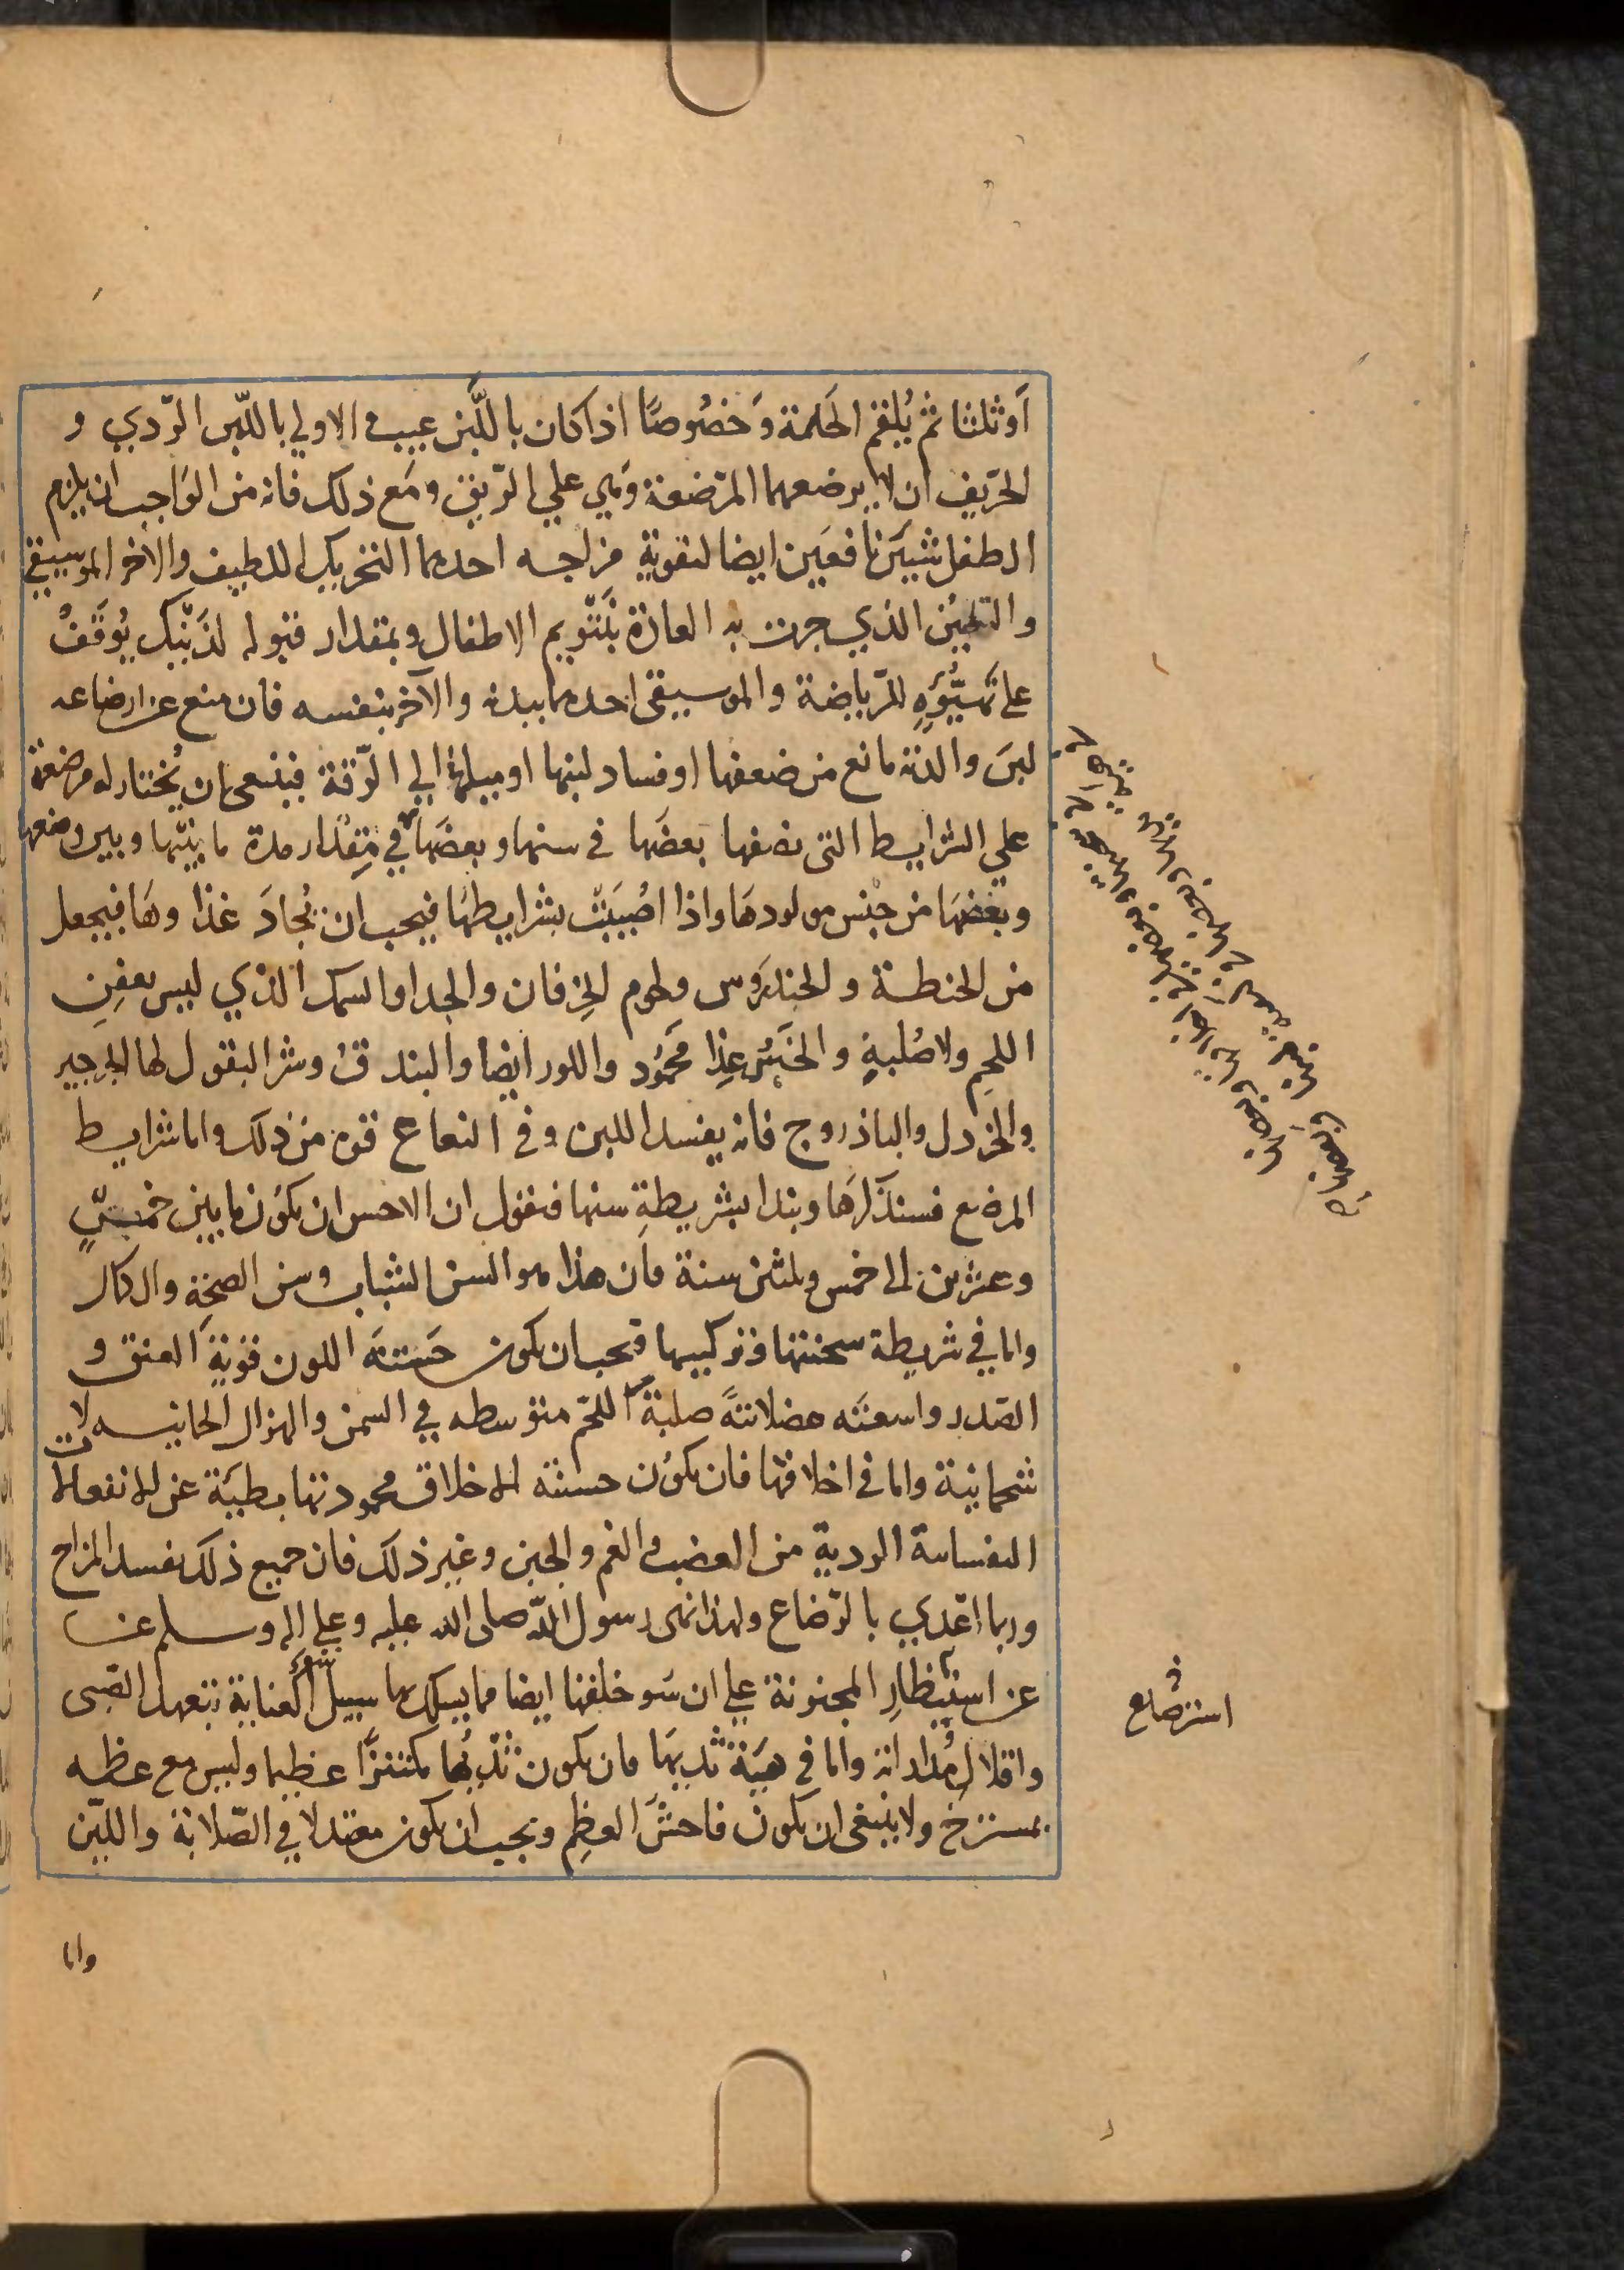 اَوثلثا ثم يُلقم الحَلمة وَخصُوصًا اذا كان باللَّبن عيب والاولي باللّبن الرّدي و
الحرّيف ان لا يرضعهما المرّضعة وَهي علي الرّيق ومَع ذلك فانه من الوَاجب ان يلزم
الطفل شيئَين نافعَين ايضا لتقوية مزاجه احدهما التحريك اللطيف والاخر الموسيقي
والتلحين الذي جرت به العادة بتنويم الاطفال وبمقدار قبوله لذَينك يُوقَفُ
على تهيّؤَهِ للرّياضة والموسيقى احدهما ببدنه والآخر بنفسه فان منع عن ارضاعه
لبنَ والدته مانع من ضعفها او فساد لبنها او ميلها الي الرّقة فينبغى ان يُختار له مرضعة
علي الشرايط التى نصفها بعضَها فى سنها وبعضَها في مِقدار مدة ما بينها وبين وضعها
وبعضهَا من جنس مولودهَا واذا اصُيبَت بشرايطهَا فيجب ان يُجادَ غذاوهَا فيجعل
من الحنطة والحندَروس ولحوم الخرفان والجدا والسمك الذي ليس بعفِنِ
اللحمِ ولا صُلبهِ والخسُ غِذا محَمُود واللوز ايضا والبندق وشر البقول لها الجرجير
والخردل والباذروج فانه يفسد اللبن وفي النعناع قوة من ذلك واما شرايط
المرضع فسنذكرهَا ونبدا بشريطةِ سنها فنقول ان الاحسن ان يكوُن ما بين خمسٍ
وعشرين الى خمس وثلثين سنة فان هذا هو السن الشباب وسن الصحّة والكمال
واما في شريطة سحنتها وتركيبها فيجب ان يكون حَسنَة اللون قويةَ العنق و
الصّدر واسعَته عضلانيّةً صلبةَ اللحّم متوسطه في السمن والهزال لحمانيه لا
شحمانية واما فى اخلاقها فان يكوُن حسنة الاخلاق محمودتها بطيّة عن الانفعالات
النفسانية الردية من الغضب والغم والجبن وغير ذلك فان جميع ذلك يفسد المزاج
وربما اعدي بالرّضاع ولهذا نهى رسول اللّه صلى الله عليه وعلي اله وسلم عن
عن استيظارِ المجنونة علي ان سَو خلقها ايضا مما يسلك بها سبيل سُوء العناية بتعهد الصّبى
واقلال مُداراته واما فى هيَة ثديهَا فان يكون ثدَيُها مكتنزًا عظيما وليس مع عظمه
بمسترخٍ ولا ينبغى ان يكون فاحشَ العظِم ويجب ان يكون معتدلا في الصّلابة واللّين
استرضاع
واما